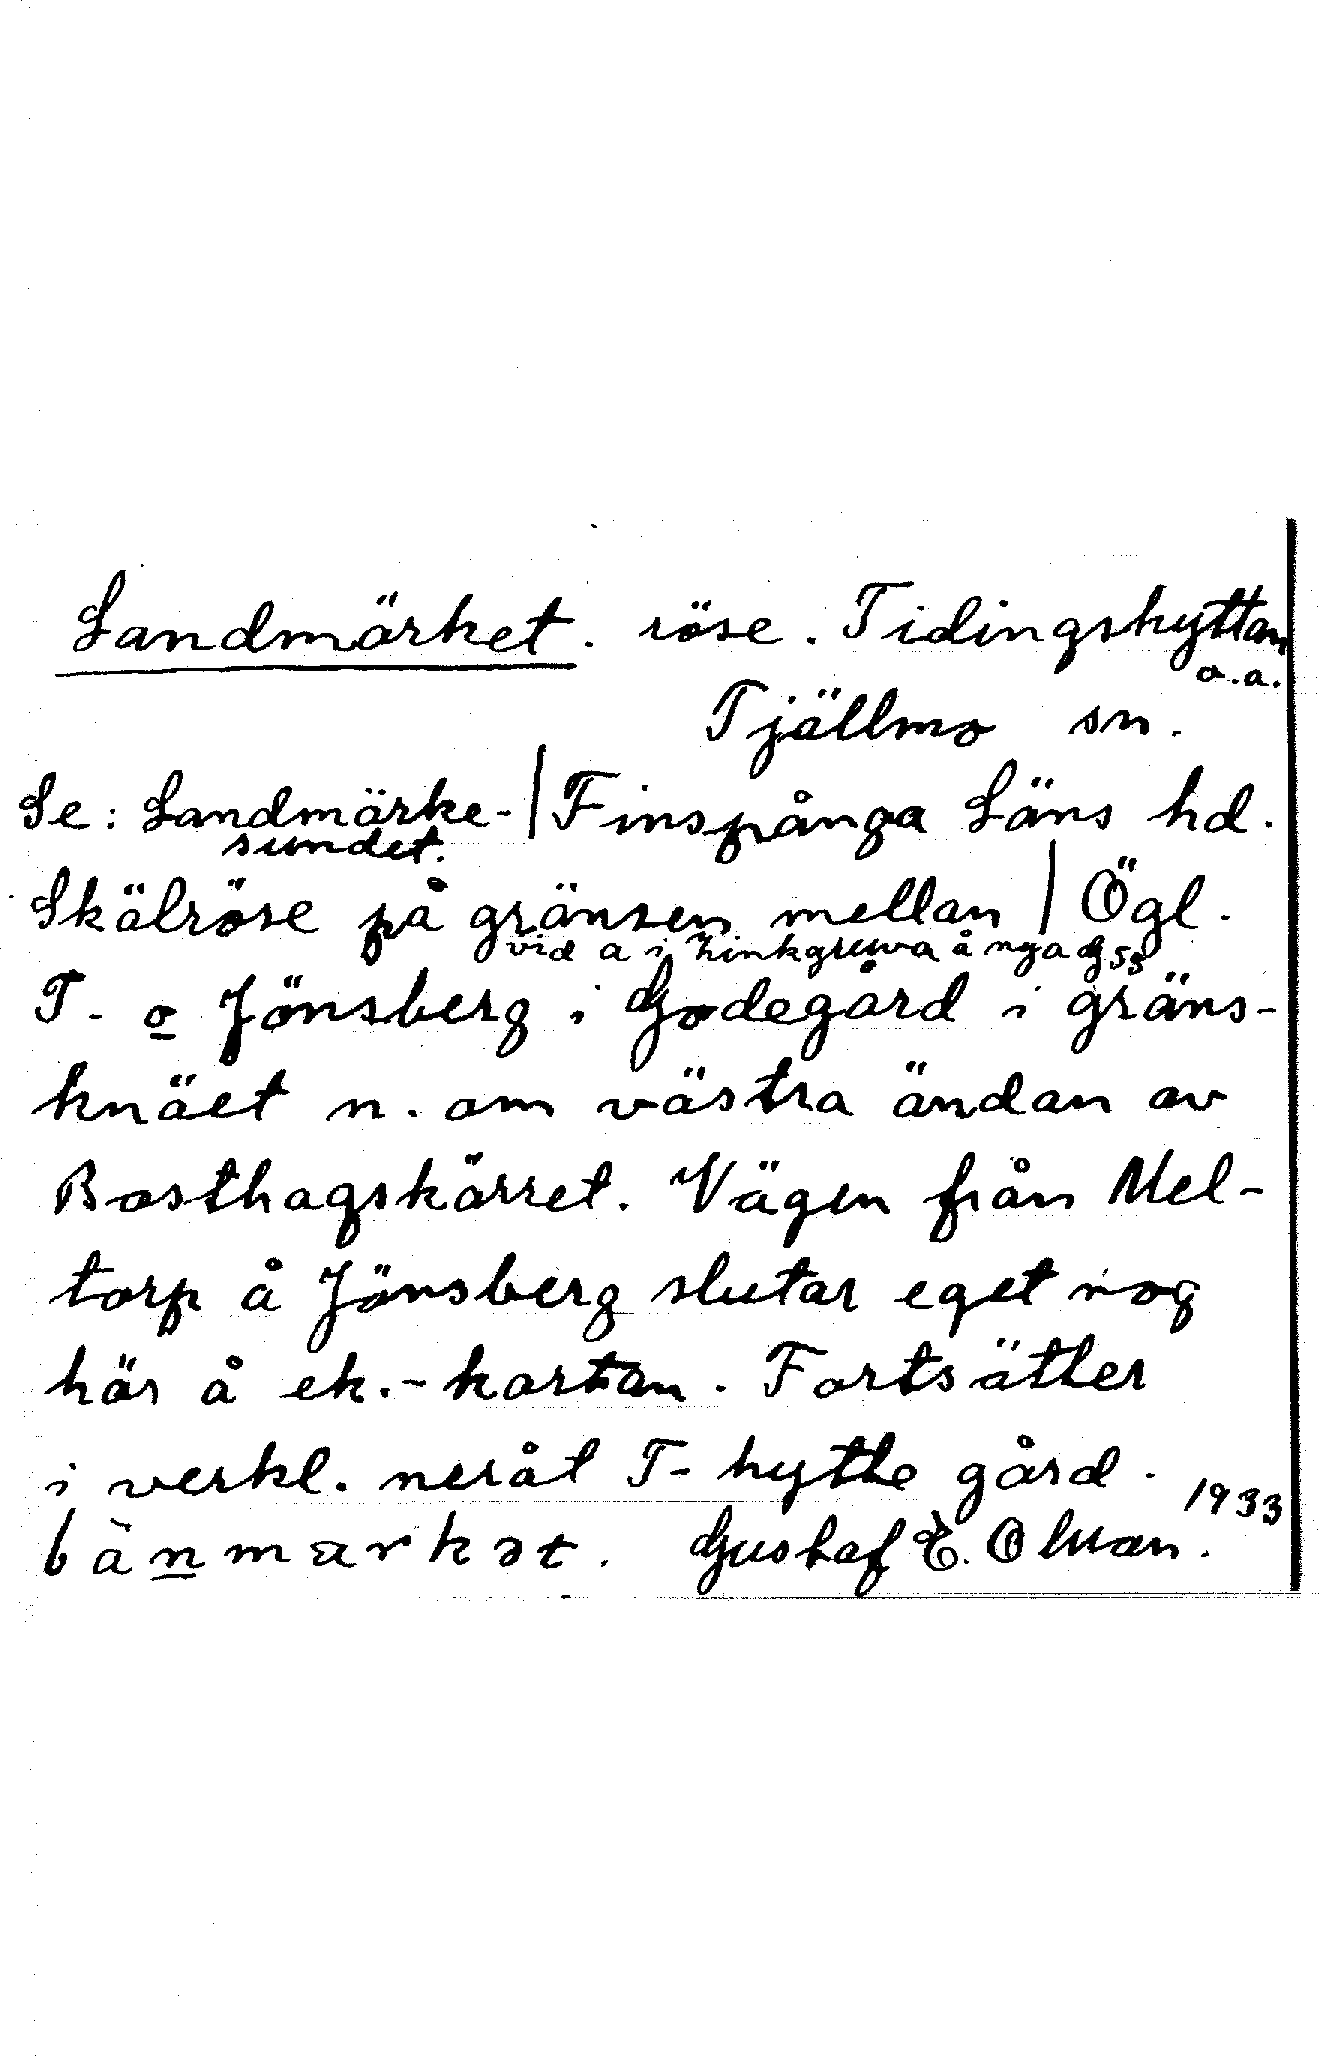 Landmärket. röse. Tidingshyttan
o.a.
Tjällmo sn.
Se: Landmärke-| Finspånga Läns hd.
sundet.
Skälröse på gränsen mellan | Ögl.
vid a i Zinkgruva å nya G55
T- o Jönsberg i Godegård i gräns-
knäet n. om västra ändan av
Bosthagskärret. Vägen från Mel-
torp å Jönsberg slutar eget nog
här å ek.-kartan. Fortsätter
i verkl. neråt T-hytte gård.
1933
lànmarkət. Gustaf E. Olman.